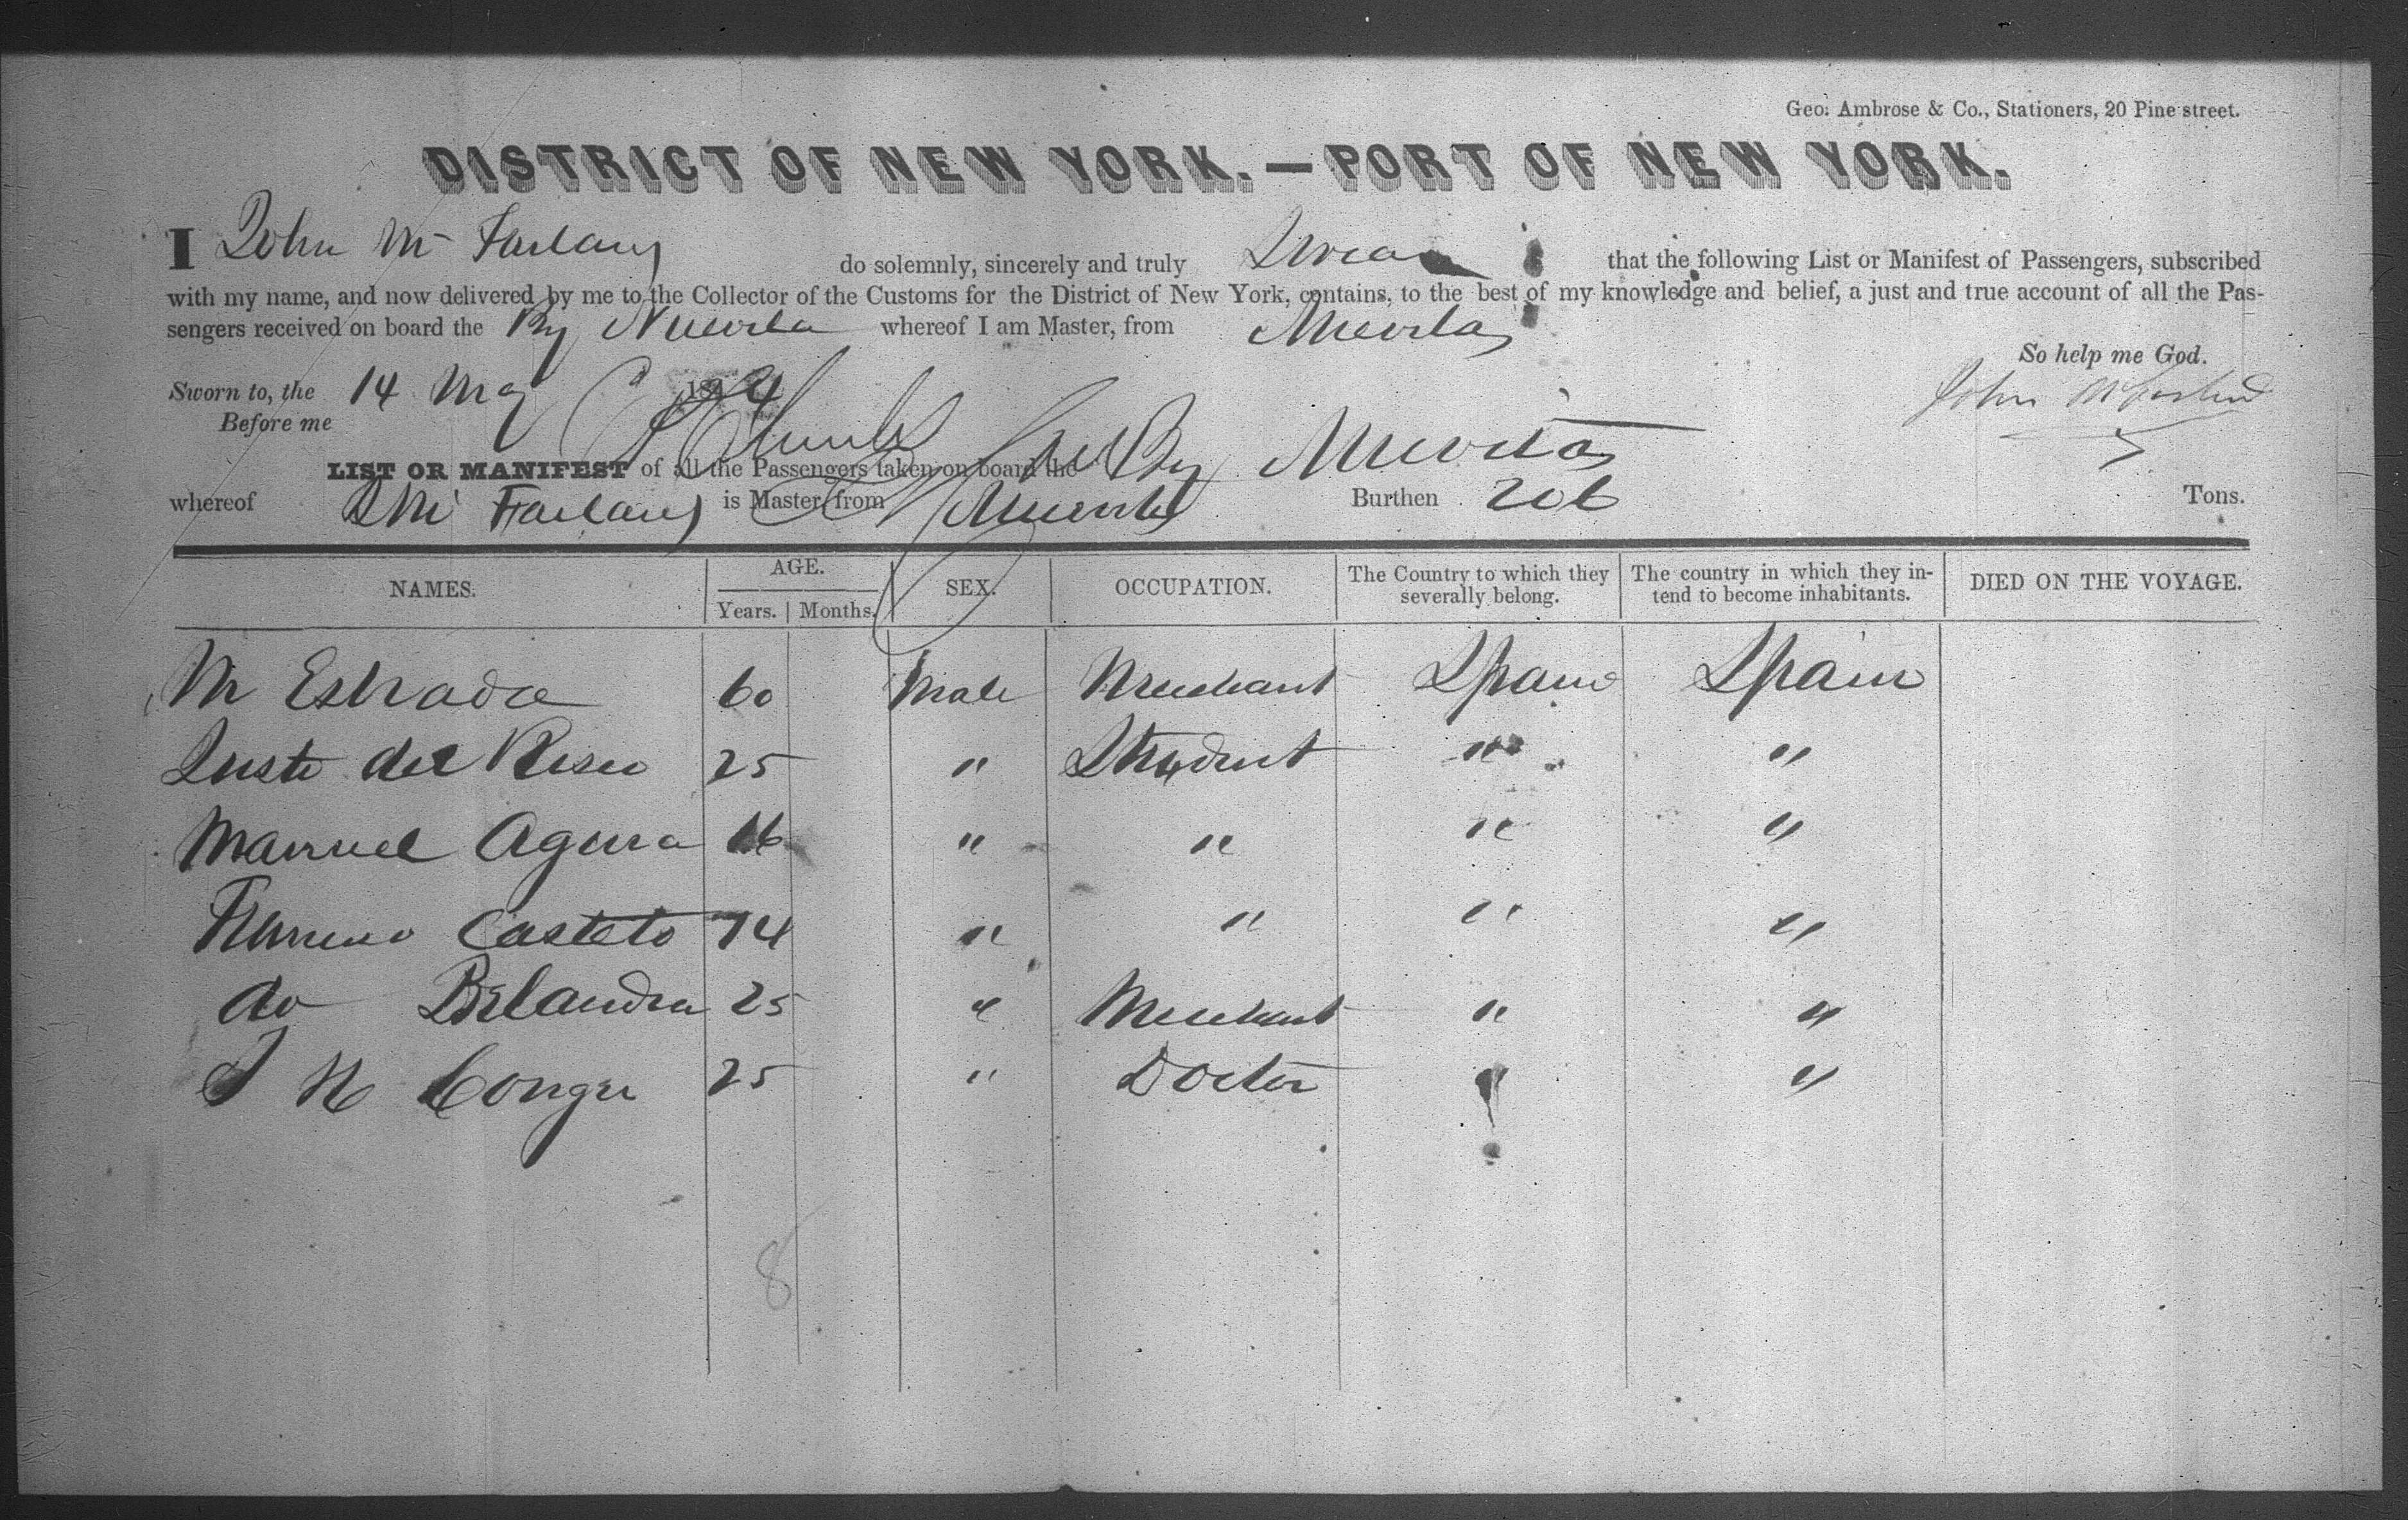 Geo. Ambrose & Co., Stationers, 20 Pine street.
DISTRICT OF NEW YORK.—PORT OF NEW YORK.
I John Mc Farlan do solemnly, sincerely and truly Swear that the following List or Manifest of Passengers, subscribed
with my name, and now delivered by me to the Collector of the Customs for the District of New York, contains, to the best of my knowledge and belief, a just and true account of all the Pas-
sengers received on board the Brg Nuevitas whereof I am Master, from Nuevitas
So help me God.
Sworn to, the 14 May 18 4
John McFarland
Before me
LIST OR MANIFEST of all the Passengers taken on board the Brg Nuevitas
whereof J Mc Farlan is Master, from Nuevitas Burthen 206 Tons.
NAMES. AGE. SEX. OCCUPATION. The Country to which they severally belong. The country in which they in-tend to become inhabitants. DIED ON THE VOYAGE.
Years. Months.
M Estrada 60 Male Merchant Spain Spain
Juste del Risco 25 " Student " "
Manuel Agura 16 " " " "
Casteto 14 " " " "
do Belandra 25 " Merchant " "
J H Conger 25 " Doctor "
8